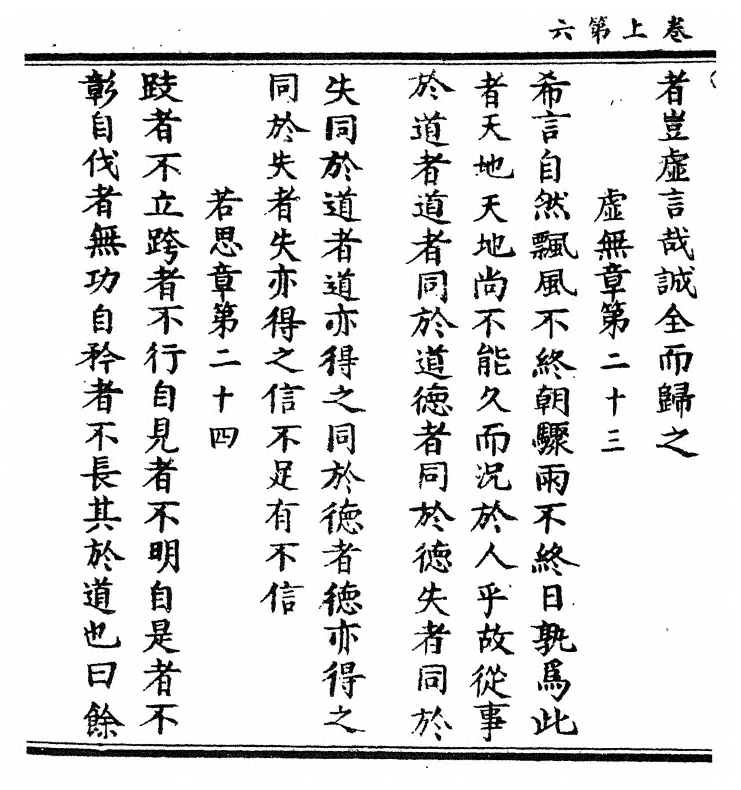 卷上第六
者豈虛言哉誠全而歸之
虛無章第二十三
希言自然飄風不終朝驟雨不終日孰爲此
者天地天地尚不能久而況於人乎故從事
於道者道者同於道德者同於德失者同於
失同於道者道亦得之同於德者德亦得之
同於失者失亦得之信不足有不信
若思章第二十四
跂者不立跨者不行自見者不明自是者不
彰自伐者無功自矜者不長其於道也曰餘